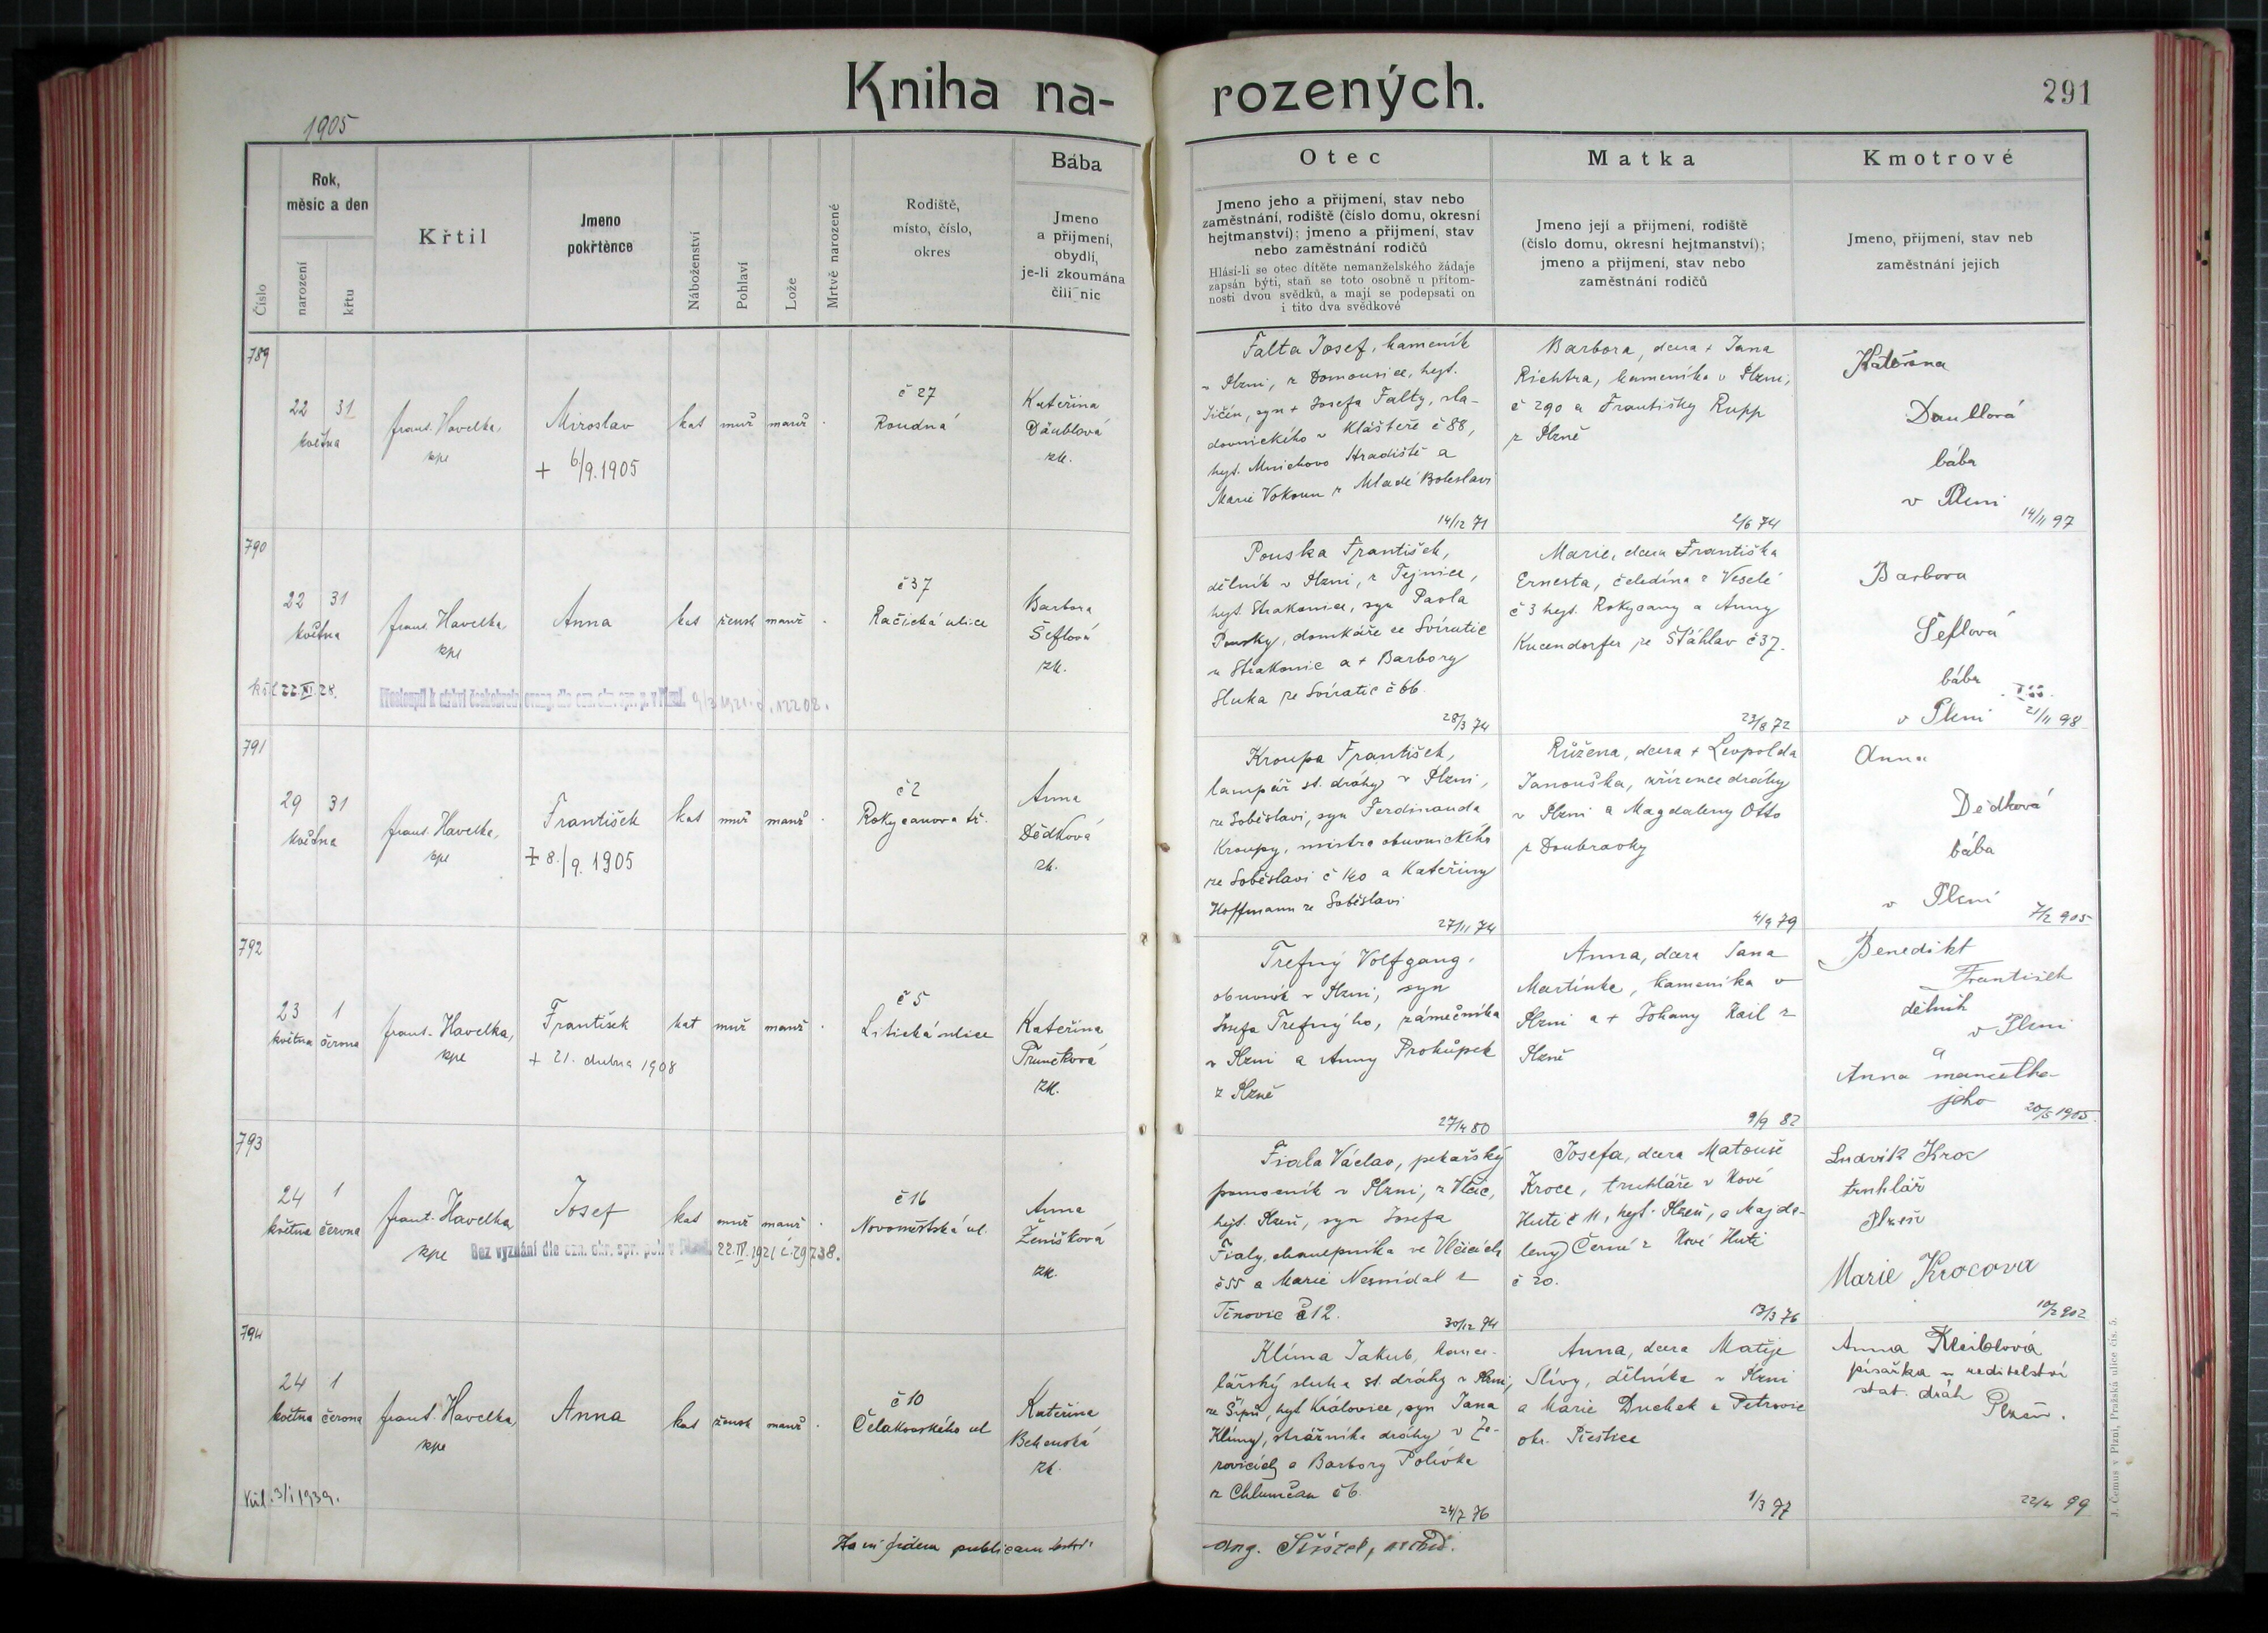 Kniha na-
rozených.
291
1905
Číslo
Rok,
měsíc a den
narození
křtu
Křtil
Jmeno
pokřtènce
Náboženství
Pohlaví
Lože
Mrtvě narozené
Rodiště,
místo, číslo,
okres
Bába
Jmeno
a přijmení,
obydlí,
je-li zkoumána
čili nic
Otec
Jmeno jeho a přijmení, stav nebo
zaměstnání, rodiště (číslo domu, okresní
hejtmanství); jmeno a přijmení, stav
nebo zaměstnání rodičů
Hlásí-li se otec dítěte nemanželského žádaje
zapsán býti, staň se toto osobně u přítom-
nosti dvou svědků, a mají se podepsati on
i tito dva svědkové
Matka
Jmeno její a přijmení, rodiště
(číslo domu, okresní hejtmanství);
jmeno a přijmení, stav nebo
zaměstnání rodičů
Kmotrové
Jmeno, přijmení, stav neb
zaměstnání jejich
789
22 31
května
frant. Havelka,
kpl
Miroslav
+ 6/9. 1905
kat muž manž .
č 27
Roudná
Kateřina
Däublová
zk.
Falta Josef, kameník
v Plzni, z Domousnice, hejt.
Jičín, syn + Josefa Falty, sla-
dovnického v Klášteře č 88,
hejt. Mnichovo Hradiště a
Marie Vokoun z Mladé Boleslavi
14/12 71
Barbora, dcera + Jana
Richtra, kameníka v Plzni,
č 290 a Františky Rupp
z Plzně
2/6 74
Kateřina
Daublová
bába
v Plzni
14/11 97
790
22 31
května
frant. Havelka
kpl
Anna
kat žensk manž .
č 37
Račická ulice
Barbora
Šeflová
zk.
kšt 22.XI.28.
Přestoupil k církvi českobratr. evang. dle ozn. okr. spr. p. v Plzni. 9/3 1921. č. 12202.
Pouska František,
dělník v Plzni, z Tejnice,
hejt. Strakonice, syn Pavla
Pousky, domkáře ze Svíratic
u Strakonic a + Barbory
Sluka ze Svíratic č 66.
28/3 74
Marie, dcera Františka
Ernesta, čeledína z Veselé
č 3 hejt. Rokycany a Anny
Kucendorfer ze Šťáhlav č 37.
23/8 72
Barbora
Šeflová
bába
v Plzni
21/11 98
791
29 31
května
frant. Havelka,
kpl
František
+ 8./9. 1905
kat muž manž .
č 2
Rokycanova tř.
Anna
Dědková
zk.
Kroupa František,
lampář st. dráhy v Plzni,
ze Soběslavi, syn Ferdinanda
Kroupy, mistra obuvnického
ze Soběslavi č 140 a Kateřiny
Hoffmann ze Soběslavi
27/11 74
Růžena, dcera + Leopolda
Janouška, zřízence dráhy
v Plzni a Magdaleny Otto
z Doubravky
4/9 79
Anna
Dědková
bába
v Plzni
7/2 905
792
23 1
května června
frant. Havelka,
kpl
František
+ 21. dubna 1908
kat muž manž .
č 5
Litická ulice
Kateřina
Prunčková
zk.
Trefný Volfgang,
obuvník v Plzni, syn
Josefa Trefného, zámečníka
v Plzni a Anny Prokůpek
z Plzně
27/4 80
Anna, dcera Jana
Martínka, kameníka v
Plzni a + Johany Kail z
Plzně
9/9 82
Benedikt
František
dělník
v Plzni
a
Anna manželka
jeho
20/5 1905.
793
24 1
května června
frant. Havelka,
kpl
Josef
kat muž manž .
č 16
Novoměstská ul.
Anna
Ženíšková
zk.
Bez vyznání dle ozn. okr. spr. pol. v Plzni. 22.IV.1921 č. 29238.
Fiala Václav, pekařský
pomocník v Plzni, z Vlčic,
hejt. Plzeň, syn Josefa
Fialy, chalupníka ve Vlčicích
č 55 a Marie Nesnídal z
Tínovic č 12.
30/12 74
Josefa, dcera Matouše
Kroce, truhláře v Nové
Huti č 11, hejt. Plzeň, a Magda-
leny Černé z Nové Huti
č 20.
13/3 76
Ludvík Kroc
truhlář
Plzeň
Marie Krocova
10/2 902
794
24 1
května června
frant. Havelka,
kpl
Anna
kat žensk manž .
č 10
Čelakovského ul
Kateřina
Behenská
zk.
Vid. 3/1 1939.
Klíma Jakub, kance-
lářský sluha st. dráhy v Plzni,
ze Šípů, hejt Královice, syn Jana
Klímy, strážníka dráhy v Že-
rovicích a Barbory Polívka
z Chlumčan č 6.
24/7 76
Anna, dcera Matěje
Slívy, dělníka v Plzni
a Marie Duchek z Petrovic
okr. Přeštice
1/3 77
Anna Kleiblová
písařka u ředitelství
stat. drah
Plzeň.
22/4 99
fidem publicam
J. Černus v Plzni, Pražská ulice čís. 5.